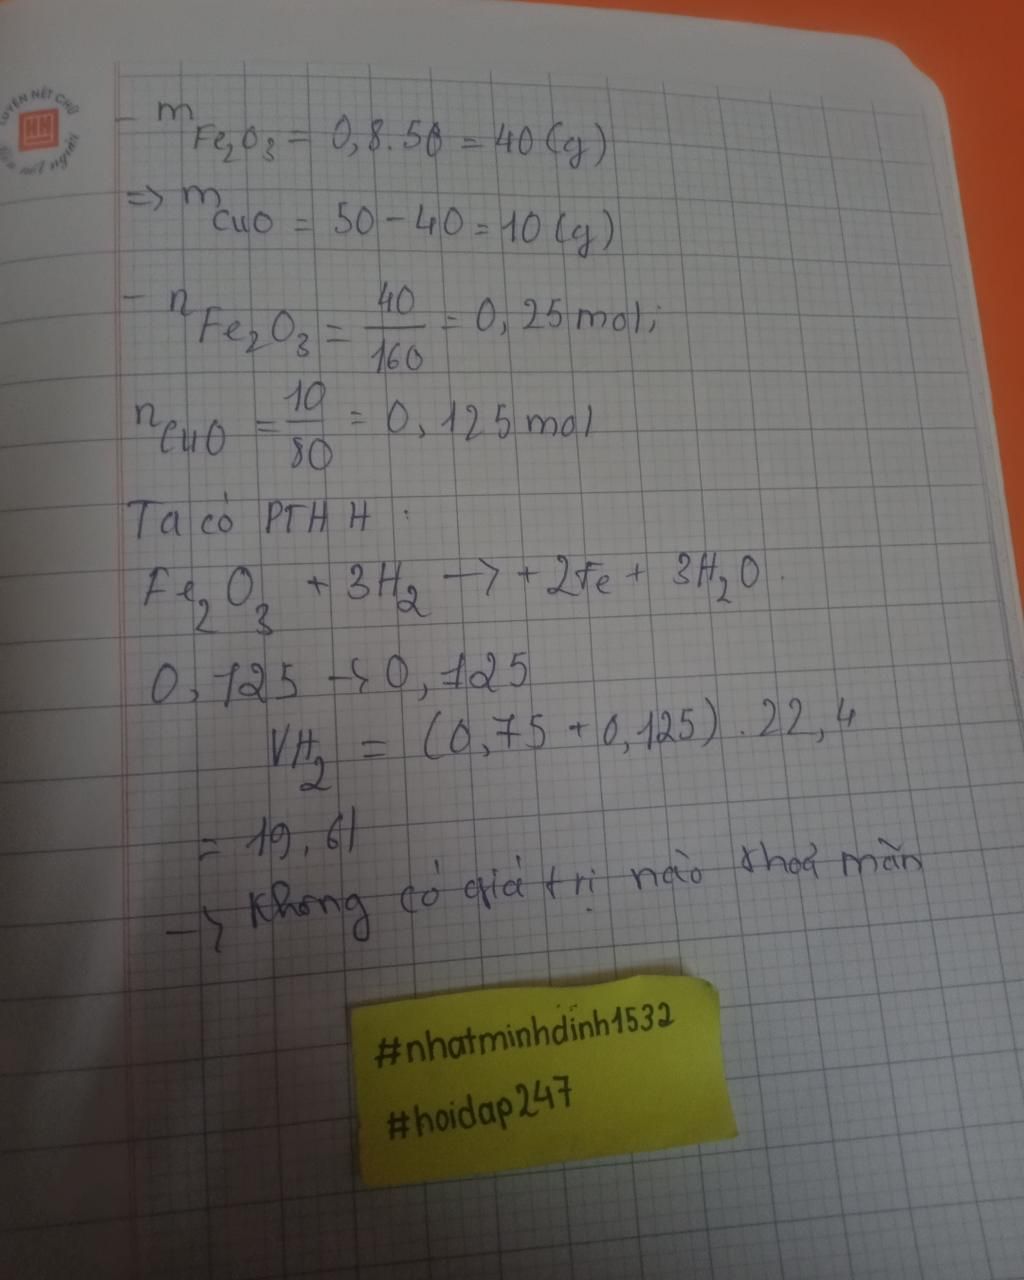 LUYỆN NÉT CHỮ
HN
Rèn nết người
- mFe₂O₃ = 0,8.50 = 40(g)
=> mCuO = 50 - 40 = 10(g)
- nFe₂O₃ = 40/160 = 0,25 mol;
nCuO = 10/80 = 0,125 mol
Ta có PTHH:
Fe₂O₃ + 3H₂ → + 2Fe + 3H₂O.
0,125 → 0,125
VH₂ = (0,75 + 0,125).22,4
= 19,6l
→ Không có giá trị nào thoả mãn
#nhatminhdinh1532
#hoidap247